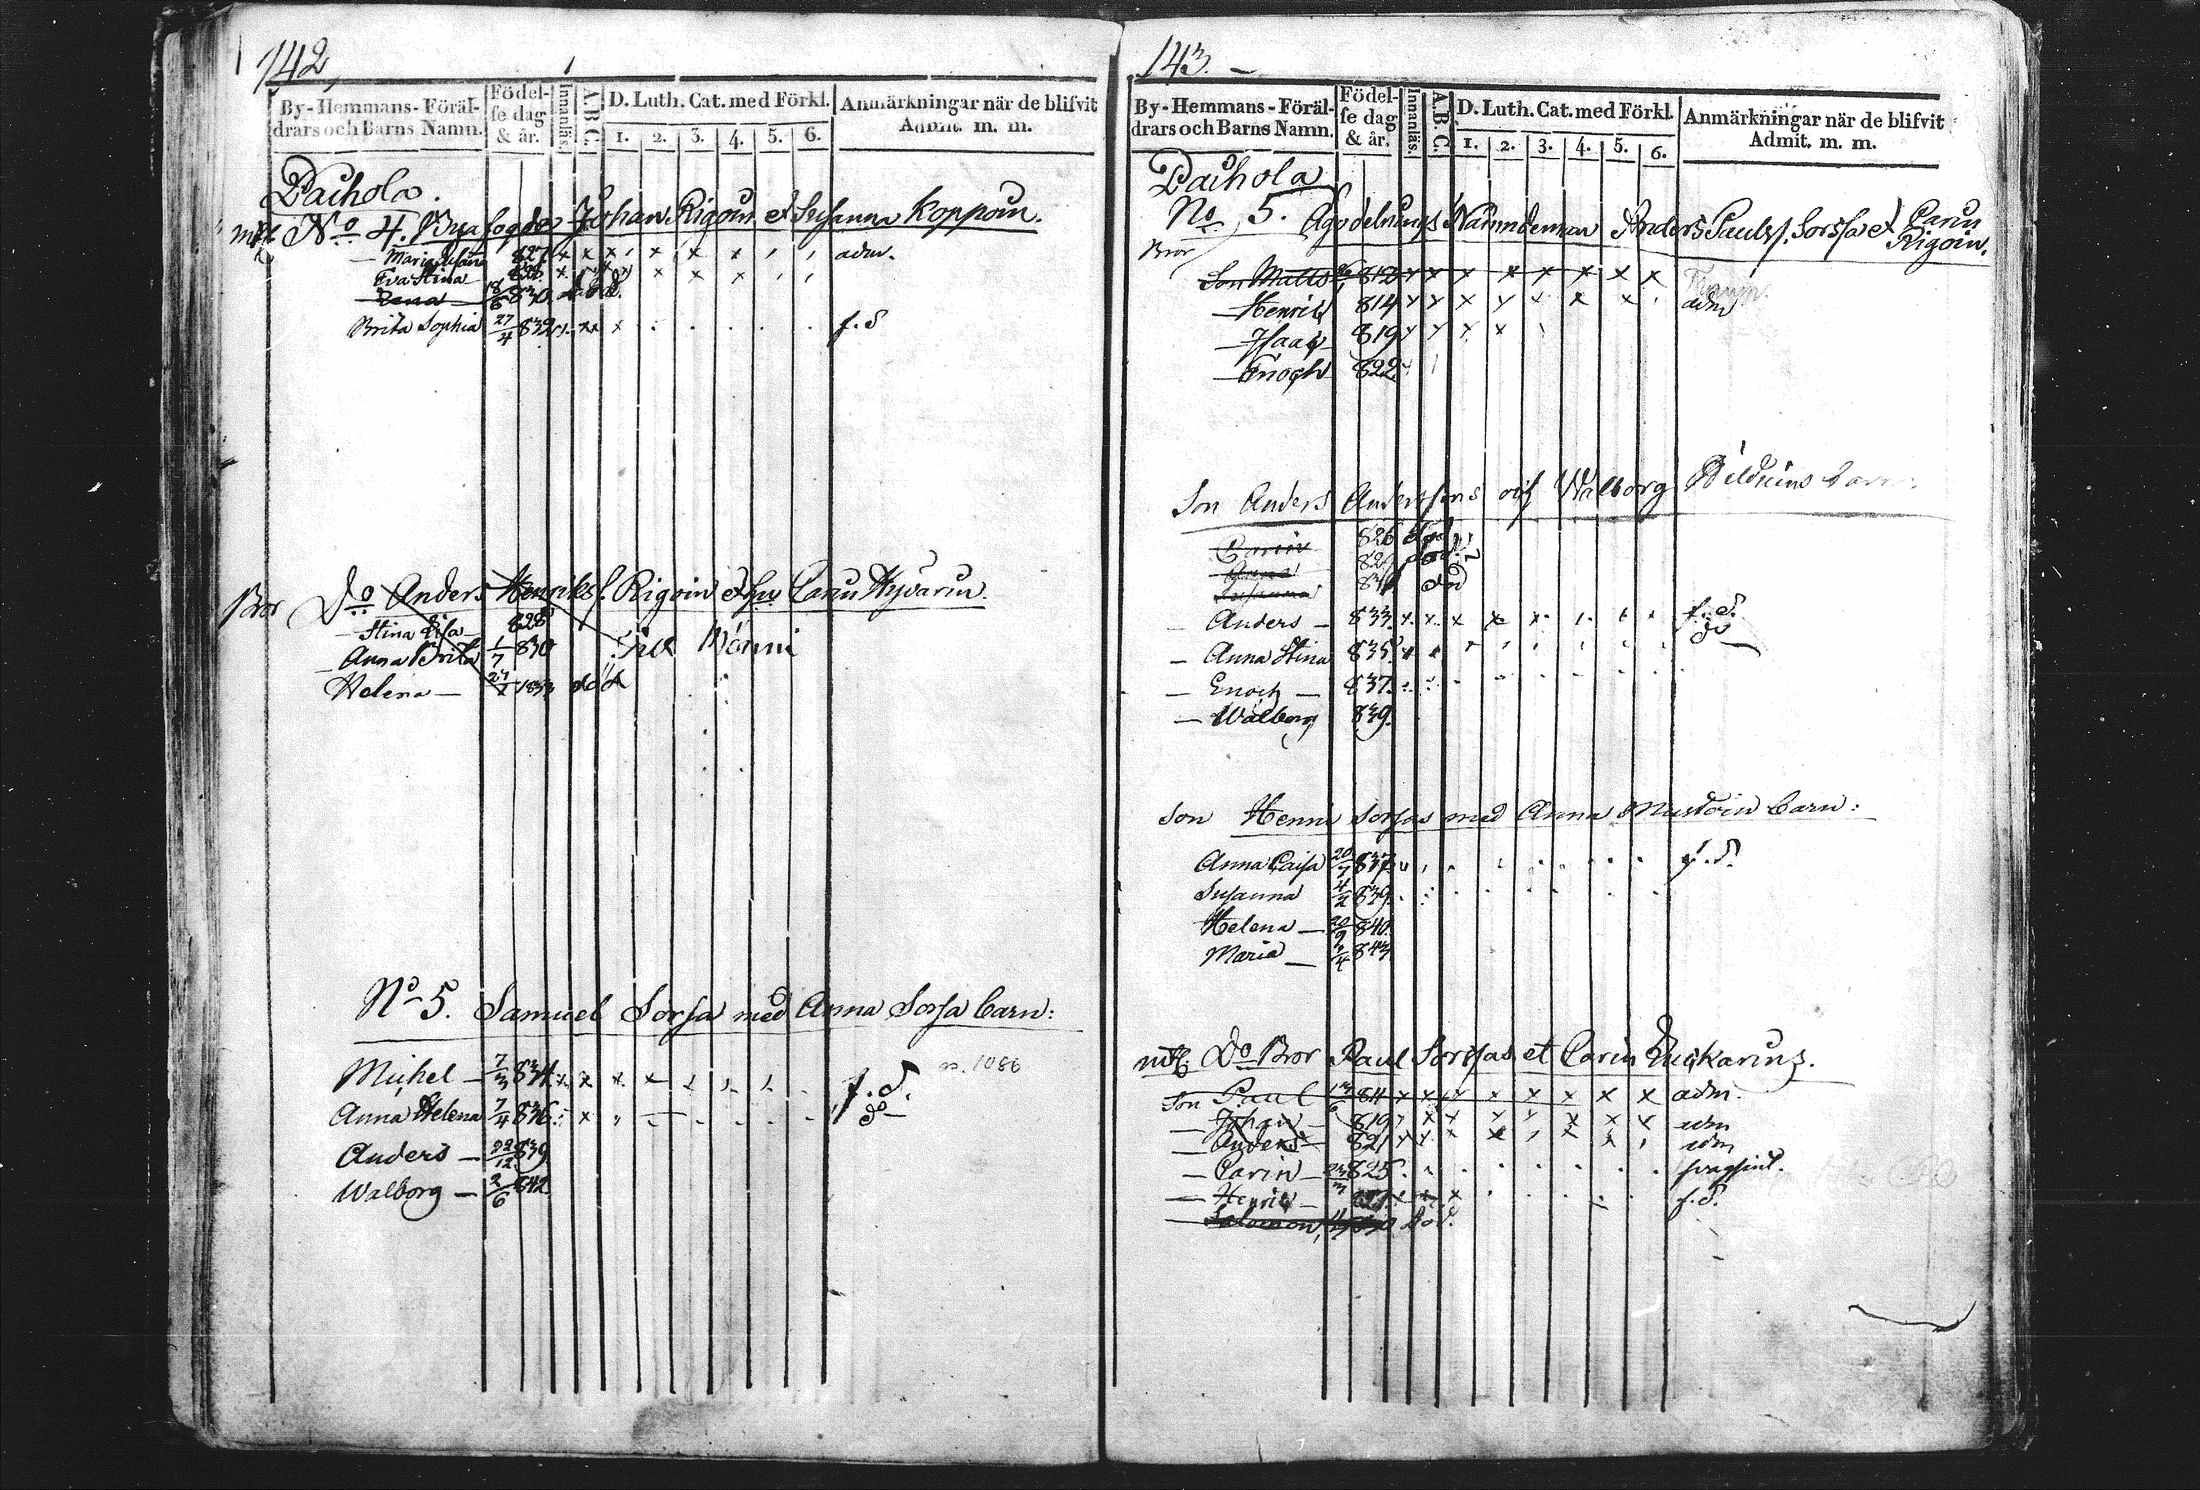 142,
By-Hemmans-Föräl-
drars och Barns Namn.
Födel-
se dag
& år.
Innanläs.
A.B.C.
D. Luth. Cat. med Förkl.
1. 2. 3. 4. 5. 6.
Anmärkningar när de blifvit
Admit. m. m.
Paihola.
No 4. Byafogden Johan Rigoin et Susanna Koppoin.
Maria Susana 827 x x x x x x x adm.
Eva Stina 828 x x x x x x x
Lena 18/6 830. död.
Brita Sophia 27/4 832 x x x f. d
Bror Do Anders Henriks. Rigoin et hu Carin Hyvärin.
Stina Lisa 828
Anna Brita 1/7 830 Till Mönni
Helena 1833 död
No 5. Samuel Sorsa med Anna Sorsa barn:
Michel 7/3 834. x x x x f. d. n. 1086
Anna Helena 7/4 836 x do
Anders 22/12 839
Walborg 2/6 842
143.
By-Hemmans-Föräl-
drars och Barns Namn.
Födel-
se dag
& år.
Innanläs.
A.B.C.
D. Luth. Cat. med Förkl.
1. 2. 3. 4. 5. 6.
Anmärkningar när de blifvit
Admit. m. m.
Paihola
No 5. Nämndeman Anders Pauls. Sorsa et Carin
Rigoin.
Bror
Son Matts 812 x x x x x x x x
Henric 814 x x x x x x x adm
Isaac 819 x x x x
Enoch 822.
Son Anders Anderssons och Walborg barn
Carin 826 död
Anna 82 död
Susanna 83 död
Anders 833. x x x x x f. d.
Anna Stina 835. do
Enoch 837.
Walborg 839.
Son Henric Sorsas med Anna Mustoin barn:
Anna Caisa 20/7 837. f. d.
Susanna 4/2 839.
Helena 20/9 840.
Maria 843
Do Bror Paul Sorsas et Carin
Son Paul 811 x x x x x x x x adm.
Johan 819 x x x x x x x adm
Anders 821 x x x x x adm
Carin 825.
Henric 827 x x x f. d.
Salomon, 830 död.